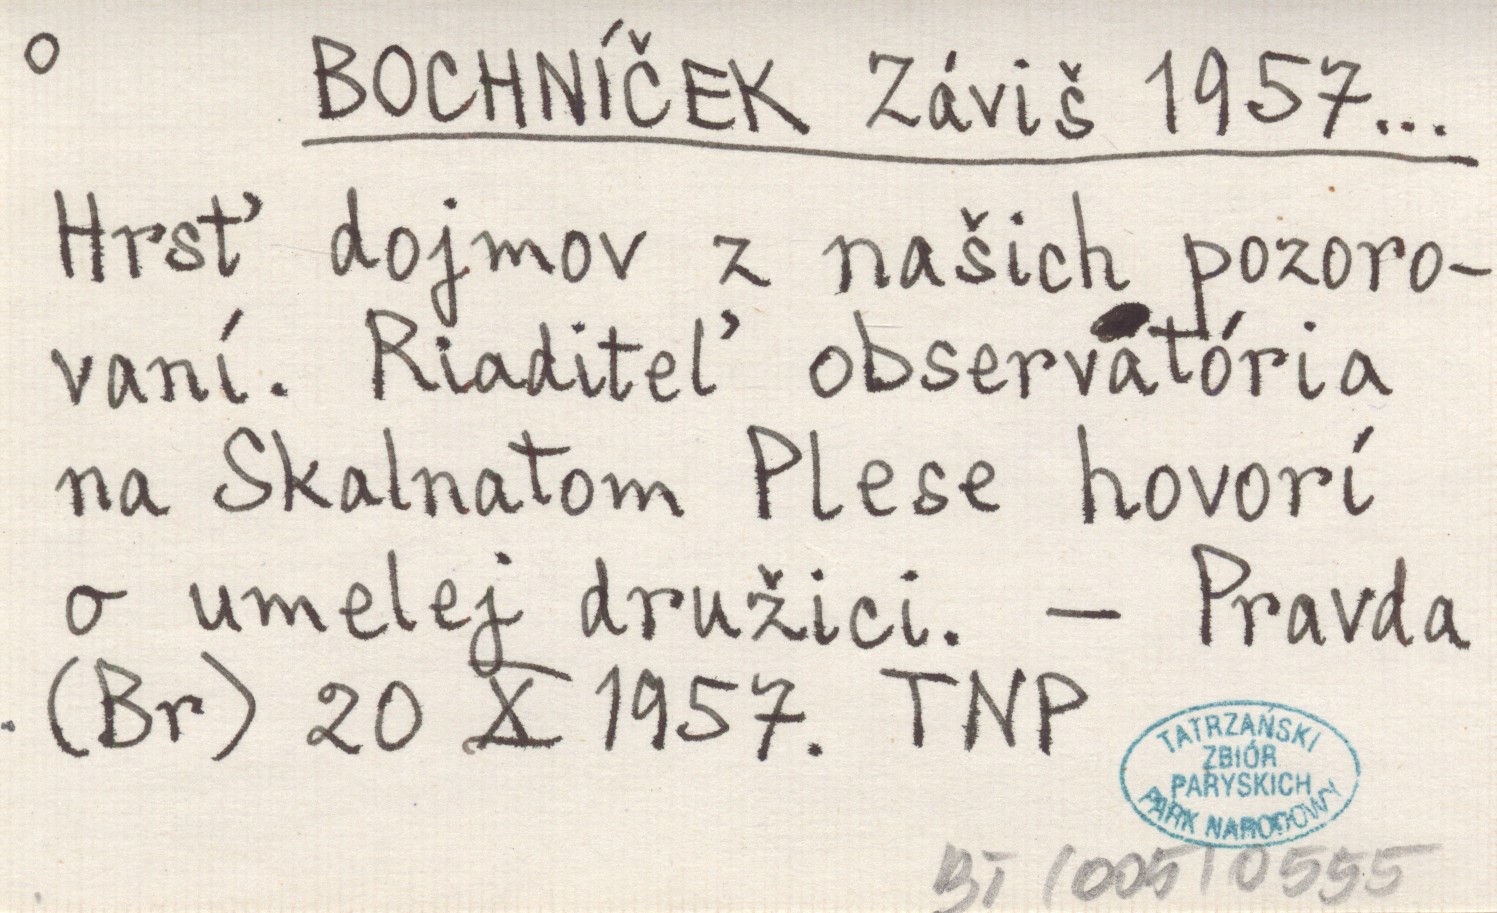 o BOCHNÍČEK Záviš 1957...
Hrsť dojmov z našich pozoro-
vaní. Riaditeľ observatória
na Skalnatom Plese hovorí
o umelej družici. — Pravda
(Br) 20 X 1957. TNP
TATRZAŃSKI
ZBIÓR
PARYSKICH
PARK NARODOWY
BT/005/0555